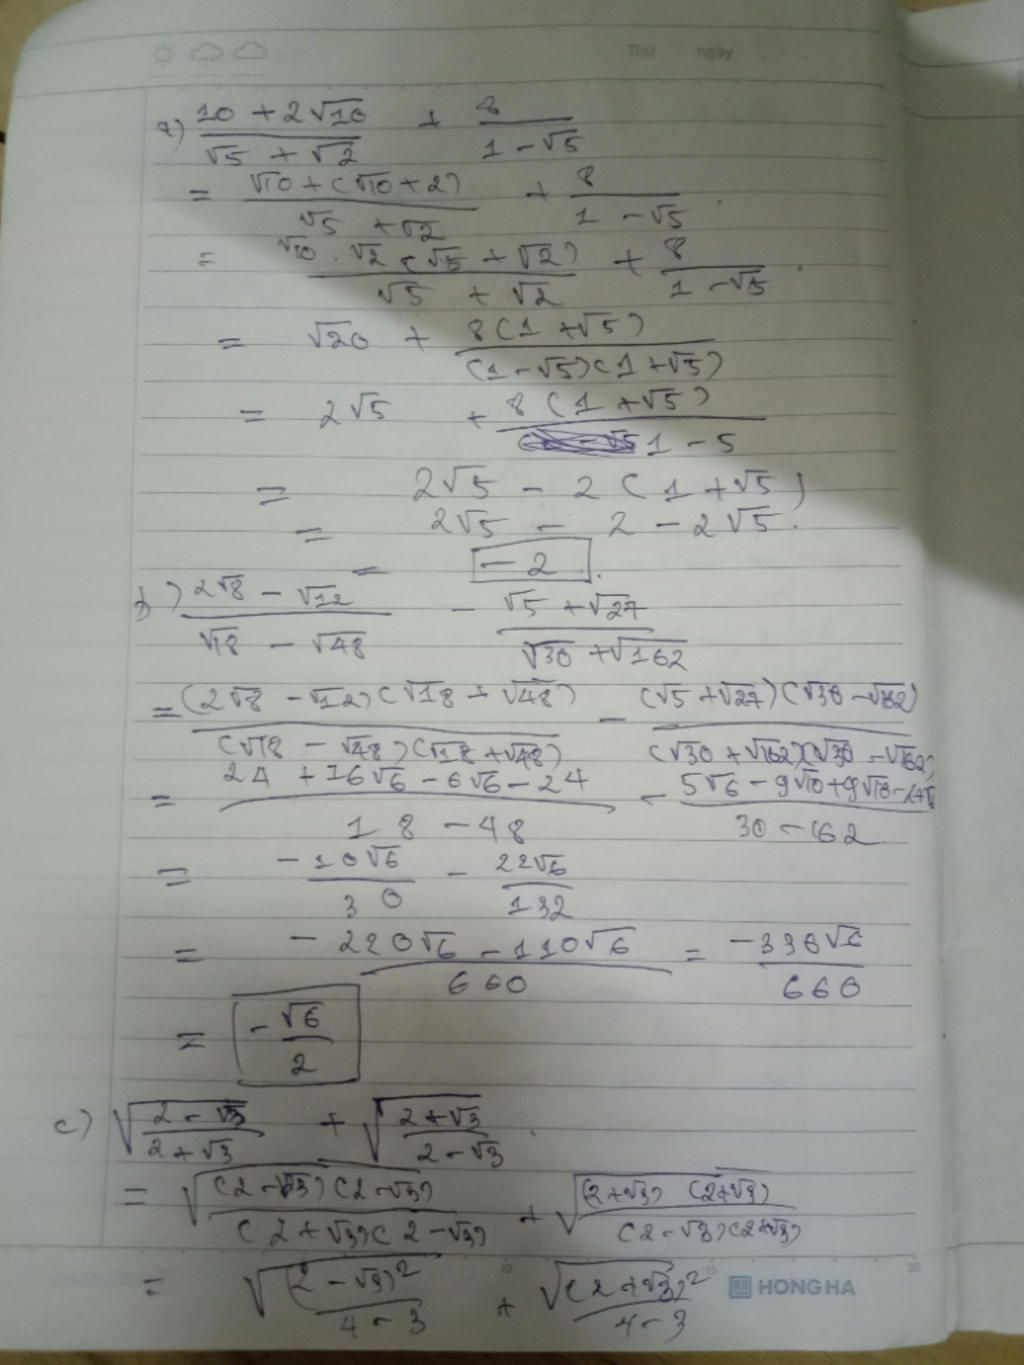 Thứ ngày
a) (10 + 2√10)/(√5 + √2) + 8/(1 - √5)
= (√10 + (√10 + 2))/(√5 + √2) + 8/(1 - √5).
= (√10 . √2 (√5 + √2))/(√5 + √2) + 8/(1 - √5).
= √20 + 8(1 + √5)/((1 - √5)(1 + √5))
= 2√5 + 8(1 + √5)/(1 - 5)
= 2√5 - 2(1 + √5)
= 2√5 - 2 - 2√5.
= -2.
b) (2√8 - √12)/(√18 - √48) - (√5 + √27)/(√30 + √162)
= (2√8 - √12)(√18 + √48)/((√18 - √48)(√18 + √48)) - (√5 + √27)(√30 - √162)/((√30 + √162)(√30 - √162))
= (24 + 16√6 - 6√6 - 24)/(18 - 48) - (5√6 - 9√10 + 9√10 - 27√6)/(30 - 162)
= -10√6/30 - 22√6/132
= (-220√6 - 110√6)/660 = -330√6/660
= -√6/2
c) √((2 - √3)/(2 + √3)) + √((2 + √3)/(2 - √3)).
= √((2 - √3)(2 - √3)/((2 + √3)(2 - √3))) + √((2 + √3)(2 + √3)/((2 - √3)(2 + √3)))
= √((2 - √3)²/(4 - 3)) + √((2 + √3)²/(4 - 3))
10 15 20
HONG HA